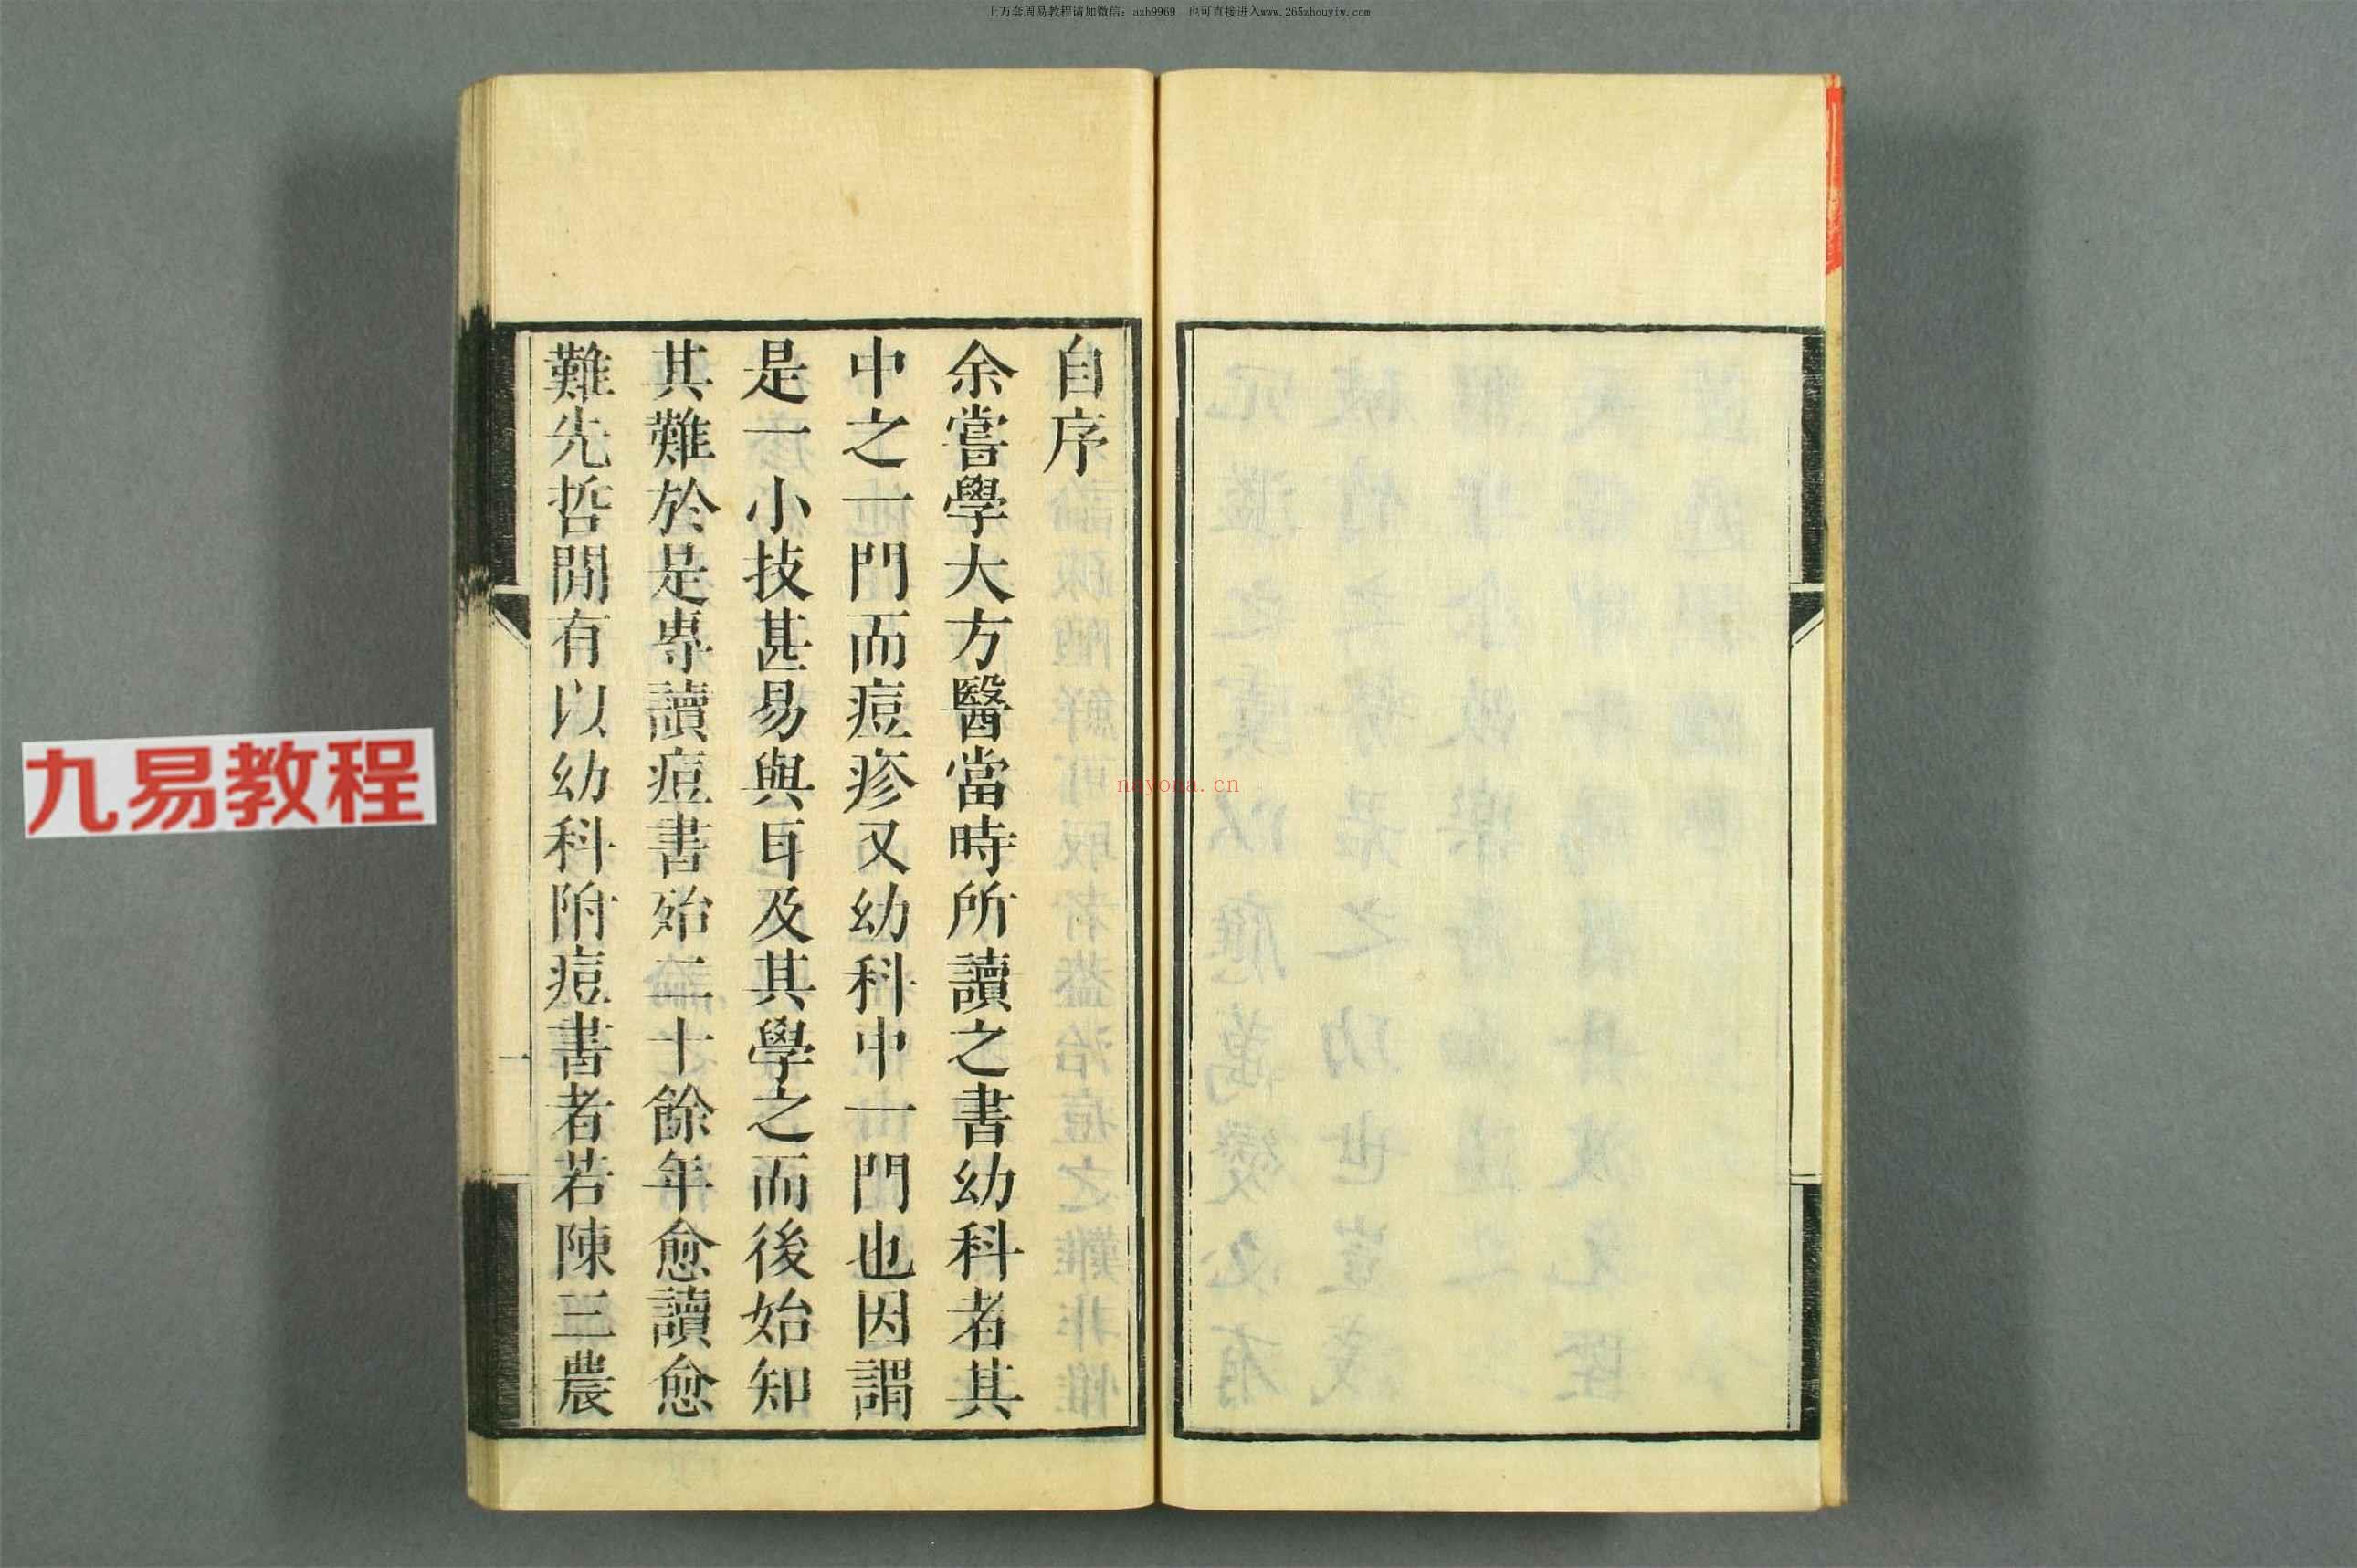 上万套周易教程请加微信：azh9969 也可直接进入www.265zhouyiw.com
自序
余嘗學大方醫當時所讀之書幼科者其
中之一門而痘疹又幼科中一門也因謂
是一小技甚易與耳及其學之而後始知
其難於是專讀痘書殆二十餘年愈讀愈
難先哲閒有以幼科附痘書者若陳三農
一
九易教程
nayona.cn